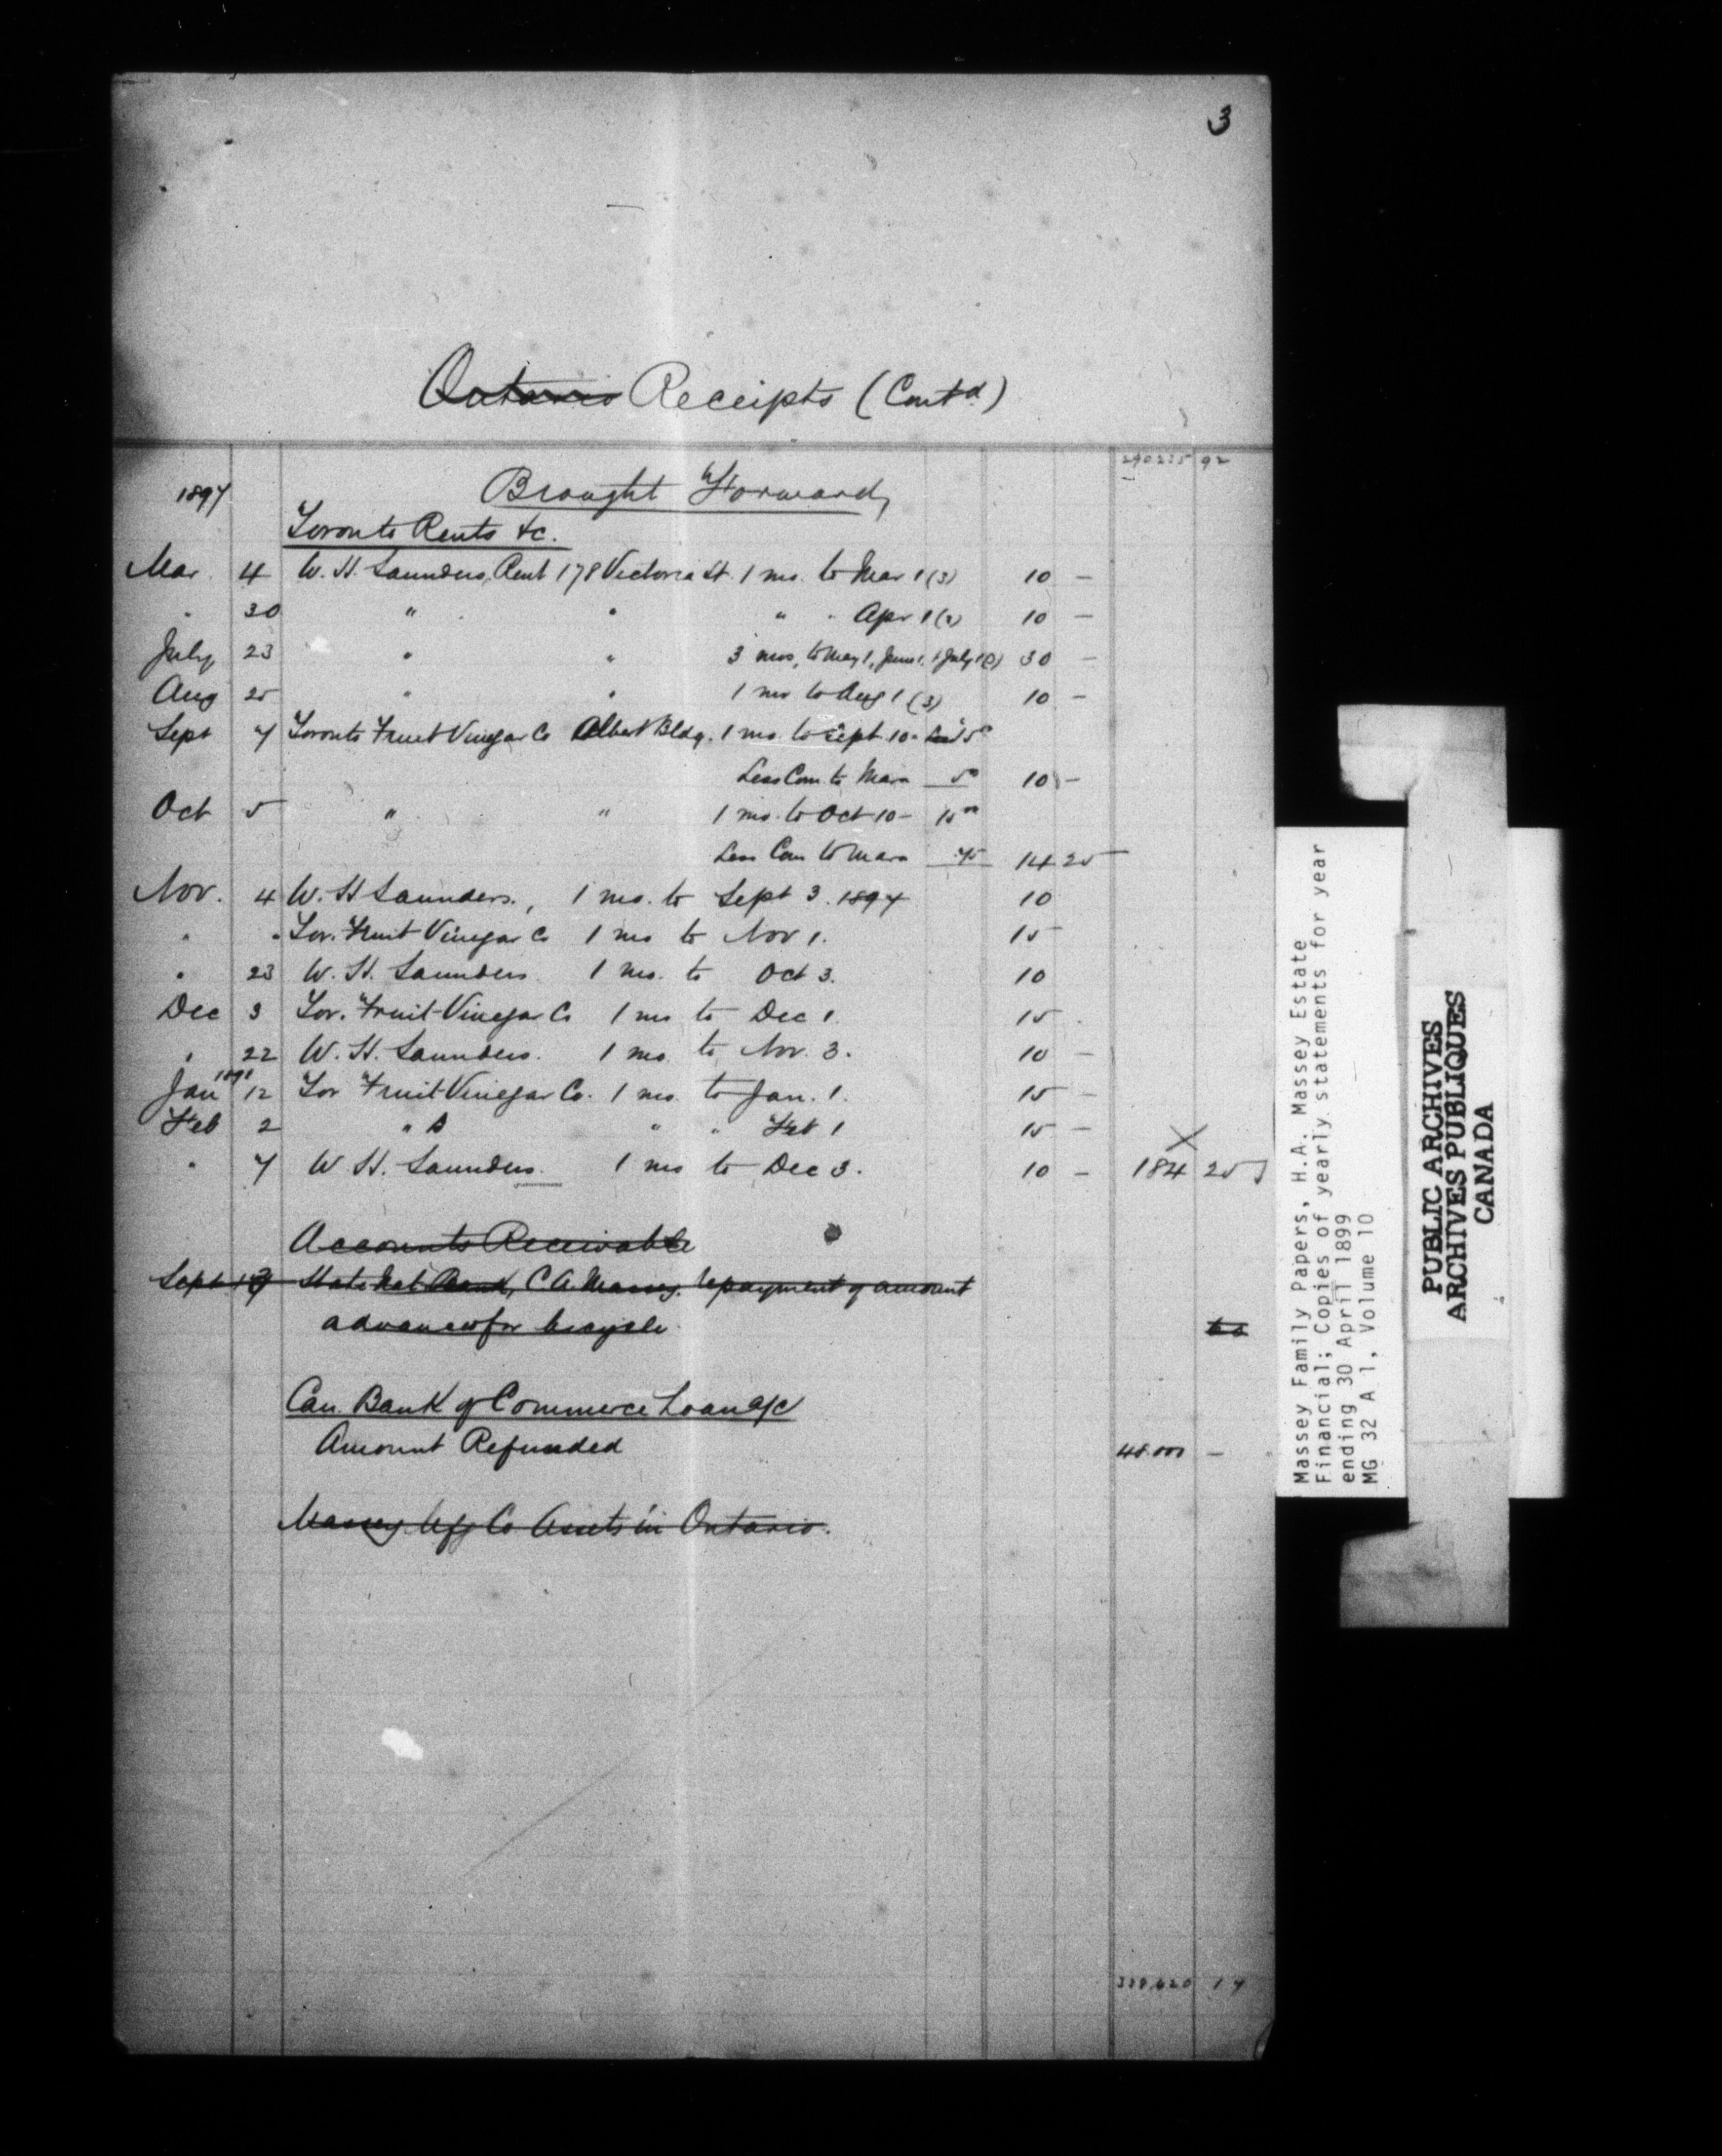 3
Ontario Receipts (Contd)
290235 92
1897 Brought Forward,
Toronto Rents &c.
Mar. 4 W. H. Saunders, Rent 178 Victoria St. 1 mo. to Mar 1 (3) 10 —
" 30 " " " " Apr 1 (3) 10 —
July 23 " " 3 mos, to May 1, June 1, & July 1 (3) 30 —
Aug 25 " " 1 mo to Aug 1 (3) 10 —
Sept 7 Toronto Fruit Vinegar Co Albert Bldg. 1 mo. to Sept 10-
Less Com to Mara 50 10 —
Oct 5 " " 1 mo. to Oct 10 — 15 00
Less Com to Mara .75 14 25
Nov. 4 W. H Saunders., 1 mo. to Sept 3. 1897 10
" " Tor. Fruit Vinegar Co 1 mo to Nov 1. 15
" 23 W. H. Saunders. 1 mo. to Oct 3. 10
Dec 3 Tor. Fruit Vinegar Co 1 mo to Dec 1. 15
" 22 W. H. Saunders. 1 mo. to Nov. 3. 10 —
Jan 1898 12 Tor Fruit Vinegar Co. 1 mo. to Jan. 1. 15 —
Feb 2 " " " Feb 1 15 —
" 7 W H. Saunders. 1 mo to Dec 3. 10 — 184 25
Accounts Receivable
Sept 13 State Nat Bank, C A Massey. repayment of amount
advanced for bicycle.
Can. Bank of Commerce Loan a/c
Amount Refunded 48.000 —
Massey Mfg Co Assets in Ontario.
338,420 17
Massey Family Papers, H.A. Massey Estate
Financial; Copies of yearly statements for year
ending 30 April 1899
MG 32 A 1, Volume 10
PUBLIC ARCHIVES
ARCHIVES PUBLIQUES
CANADA